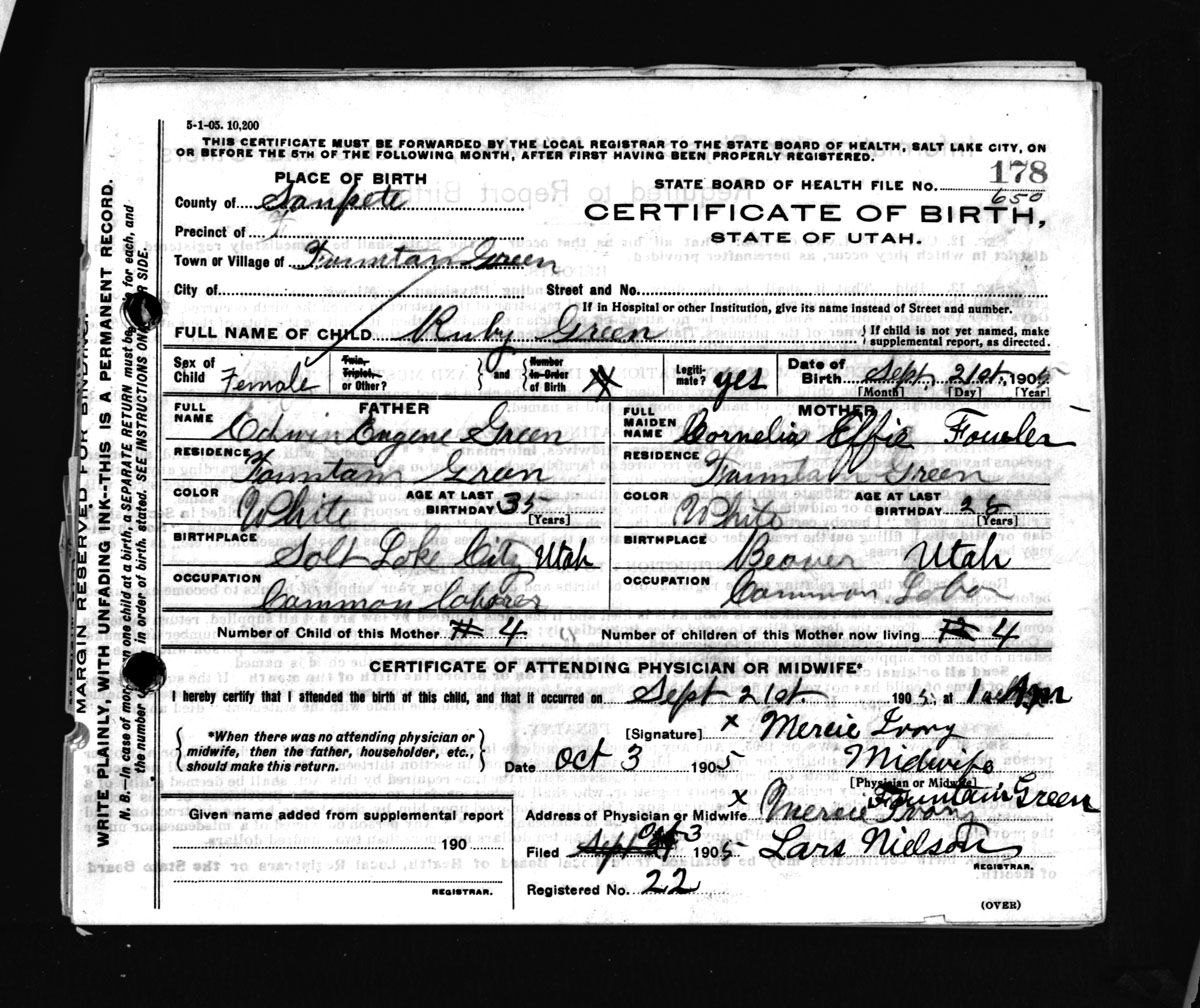 5-1-05. 10,200
THIS CERTIFICATE MUST BE FORWARDED BY THE LOCAL REGISTRAR TO THE STATE BOARD OF HEALTH, SALT LAKE CITY, ON
OR BEFORE THE 5TH OF THE FOLLOWING MONTH, AFTER FIRST HAVING BEEN PROPERLY REGISTERED.
PLACE OF BIRTH
STATE BOARD OF HEALTH FILE NO. 178
650
County of Sanpete
CERTIFICATE OF BIRTH,
STATE OF UTAH.
Precinct of
Town or Village of Fountan Green
City of Street and No.
If in Hospital or other Institution, give its name instead of Street and number.
FULL NAME OF CHILD Ruby Green } If child is not yet named, make
supplemental report, as directed.
Sex of Child Female Twin, Triplet, or Other? } and { Number in Order of Birth Legiti-mate? yes Date of Birth Sept, 21st, 1905
[Month] [Day] [Year]
FATHER MOTHER
FULL NAME Edwin Eugene Green FULL MAIDEN NAME Cornelia Effie Fowler
RESIDENCE Fountain Green RESIDENCE Fountain Green
COLOR White AGE AT LAST BIRTHDAY 35 [Years] COLOR White AGE AT LAST BIRTHDAY 28 [Years]
BIRTHPLACE Salt Lake City Utah BIRTHPLACE Beaver Utah
OCCUPATION Common Laborer OCCUPATION Common Labor
Number of Child of this Mother 4 Number of children of this Mother now living 4
CERTIFICATE OF ATTENDING PHYSICIAN OR MIDWIFE*
I hereby certify that I attended the birth of this child, and that it occurred on Sept 21st 1905, at
{ *When there was no attending physician or
midwife, then the father, householder, etc.,
should make this return. }
[Signature] x Mercie Ivory
Date Oct 3 1905 Midwife
[Physician or Midwife]
Fountain Green
Address of Physician or Midwife x Mercie Ivory
Given name added from supplemental report
190
REGISTRAR.
Oct 3
Filed Sept 1905 Lars Nielson
REGISTRAR.
Registered No. 22
(OVER)
MARGIN RESERVED FOR BINDING
WRITE PLAINLY, WITH UNFADING INK--THIS IS A PERMANENT RECORD.
N. B.--In case of more than one child at a birth, a SEPARATE RETURN must be made for each, and
the number in order of birth, stated. SEE INSTRUCTIONS ON OTHER SIDE.